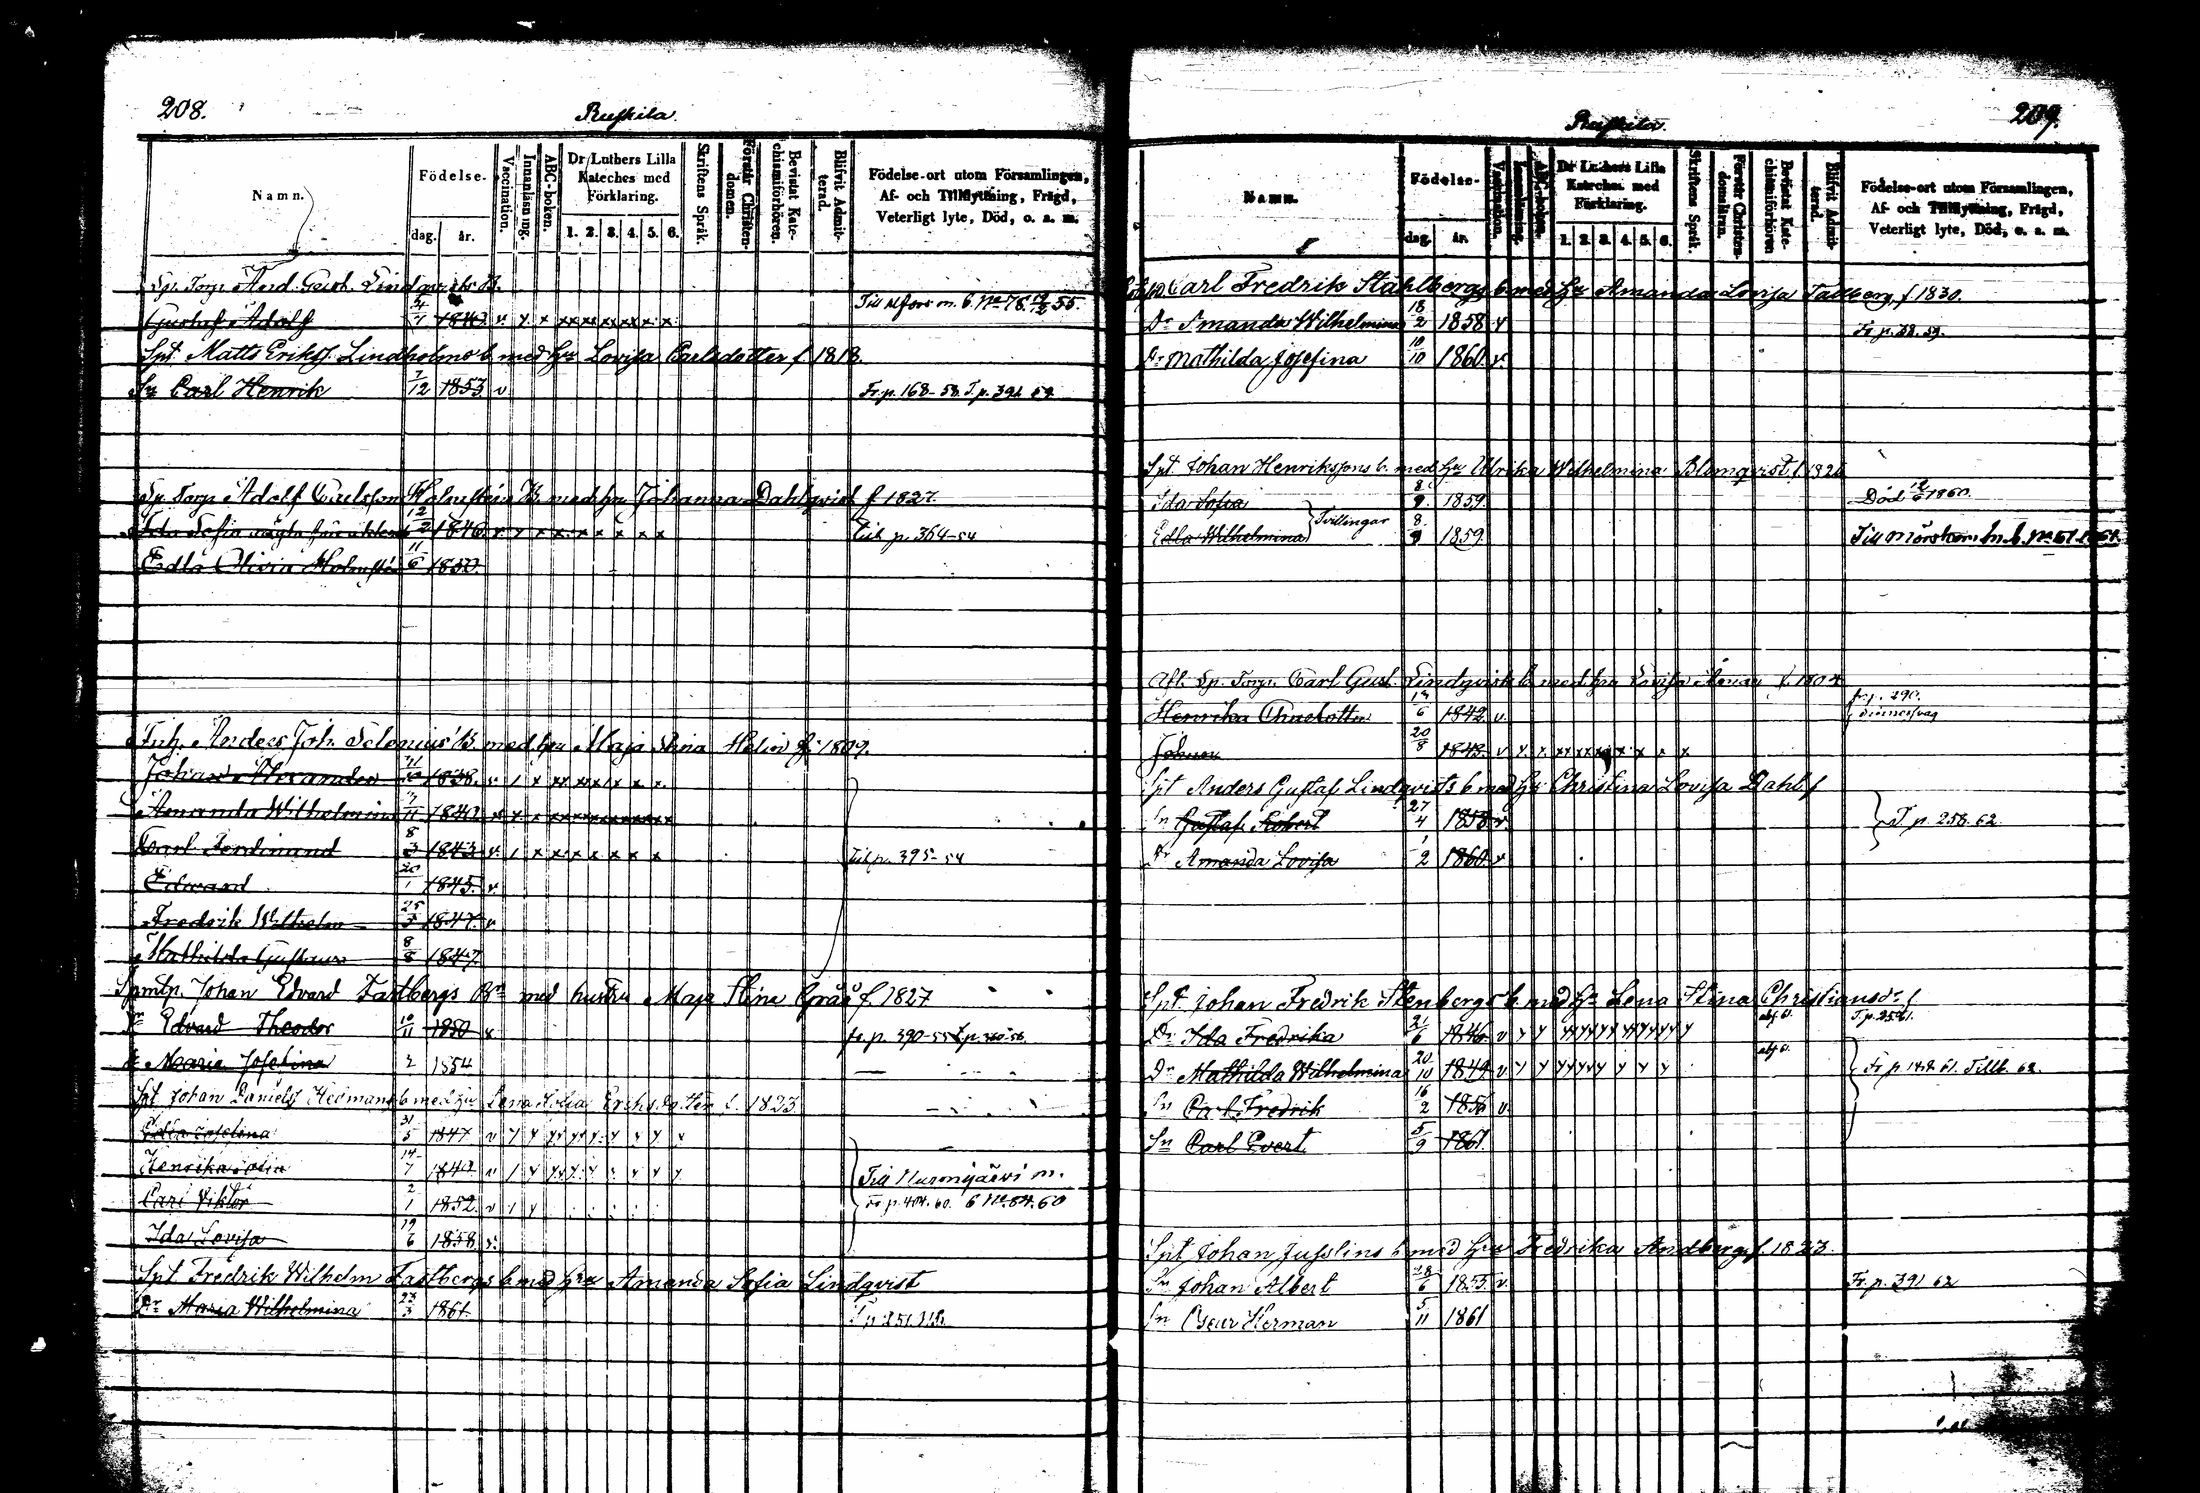 208.
Ruskila
Namn.
Födelse-
dag. år.
Vaccination.
Innanläsning.
ABC-boken.
Dr Luthers Lilla Kateches med Förklaring.
1. 2. 3. 4. 5. 6.
Skriftens Språk.
Förstår Christendomen.
Bevistat Katechismiförhören.
Blifvit Admitterad.
Födelse-ort utom Församlingen, Af- och Tillflyttning, Frägd, Veterligt lyte, Död, o. a. m.
Sp. Torp. And. Gust. Lindqvists B.
Gustaf Adolf 1843. v. Till Alfors m. b. No 78. 55.
Spt. Matts Erikss. Lindholms b. med Hu Lovisa Carlsdotter f. 1818.
Sn Carl Henrik 7/12 1853. v. Fr. p. 168-58. T. p. 394 59
Sp. Torp. Adolf Carlsson Holmsténs B. med hu Johanna Dahlqvist f 1827.
Ida Sofia 12/2 1846. Till p. 364-54
Edla Olivia Holmstén 11/6 1850.
Inh. Anders Joh. Selenius' B. med hu Maja Stina Helin f. 1809.
Johan Alexander 1838.
Amanda Wilhelmina 7/11 1840
Carl Ferdinand 8/3 1843 Till p. 395-54
Edward 20/1 1845. v.
Fredrik Wilhelm 25/3 1847. v.
Mathilda Gustava 8/8 1847.
Spmtp. Johan Edvard Fastbergs Bn med hustru Maja Stina Grås f. 1827
Sn Edvard Theodor 10/11 1850 v. fr. p. 390-55 t. p. 360-56.
Dr Maria Josefina 2 1854
Spt Johan Daniels Hedmans b med Hu Lena Sofia Eriksdotter f. 1823
Edla Josefina 31/5 1847 v
Henrika Sofia 14/7 1849 v
Carl Viktor 2/1 1852. v Till Nurmijärvi m.
Fr p. 404. 60. b No 84. 60
Ida Lovisa 19/6 1858 v.
Spt Fredrik Wilhelm Fastbergs b med Hu Amanda Sofia Lindqvist
Dr Maria Wilhelmina 23/3 1861.
209.
Ruskila.
Namn.
Födelse-
dag. år.
Vaccination.
Innanläsning.
ABC-boken.
Dr Luthers Lilla Kateches med Förklaring.
1. 2. 3. 4. 5. 6.
Skriftens Språk.
Förstår Christendomsläran.
Bevistat Katechismiförhören.
Blifvit Admitterad.
Födelse-ort utom Församlingen, Af- och Tillflyttning, Frägd, Veterligt lyte, Död, o. a. m.
Carl Fredrik Stahlbergs b. med Hu Amanda Lovisa Tallberg f 1830.
Dr Amanda Wilhelmina 18/2 1858 v Fr. p. 68. 59.
Dr Mathilda Josefina 10/10 1860. v.
Spt Johan Henrikssons b. med Hu Ulrika Wilhelmina Blomqvist f. 1826
Ida Sofia 8/9. 1859. Död 1860.
Tvillingar
Edla Wilhelmina 8/9 1859. Till Mörskom m. b. No 61. 1864.
Afl. Sp. Torp. Carl Gust. Lindqvists b. med hu Lovisa f. 1804
Henrika Charlotta 13/6 1842 v. fr p. 290.
Johan 20/8 1843. v
Spt Anders Gustaf Lindqvists b med Hu Christina Lovisa Dahl f
Sn Gustaf Robert 27/4 1858. v. T p 258. 62.
Dr Amanda Lovisa 1/2 1860. v
Spt. Johan Fredrik Stenbergs b med Hu Lena Stina Christiansdr f.
Dr Ida Fredrika 21/6 1846. v
Dr Mathilda Wilhelmina 20/10 1849 v Fr p 148. 61. Tillb. 62.
Sn Carl Fredrik 16/2 1856 v.
Sn Carl Evert 5/9 1861.
Spt Johan Jusslins b med Hu Fredrika Andberg f. 1823.
Sn Johan Albert 28/6 1855. v. Fr. p. 391 62
Sn Oscar Herman 5/11 1861